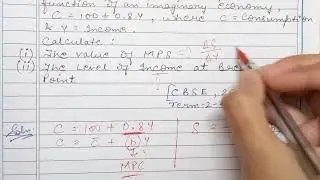 function of an imaginary economy,
C = 100 + 0.8Y, where C = Consumption
& Y = Income.
Calculate :
(i) The value of MPS =) ΔS
(ii) The Level of Income at Break
Point
[CBSE,
Term-2
Soln: C = 100 + 0.8Y
S = -
C = C̄ + (b)Y
MPC